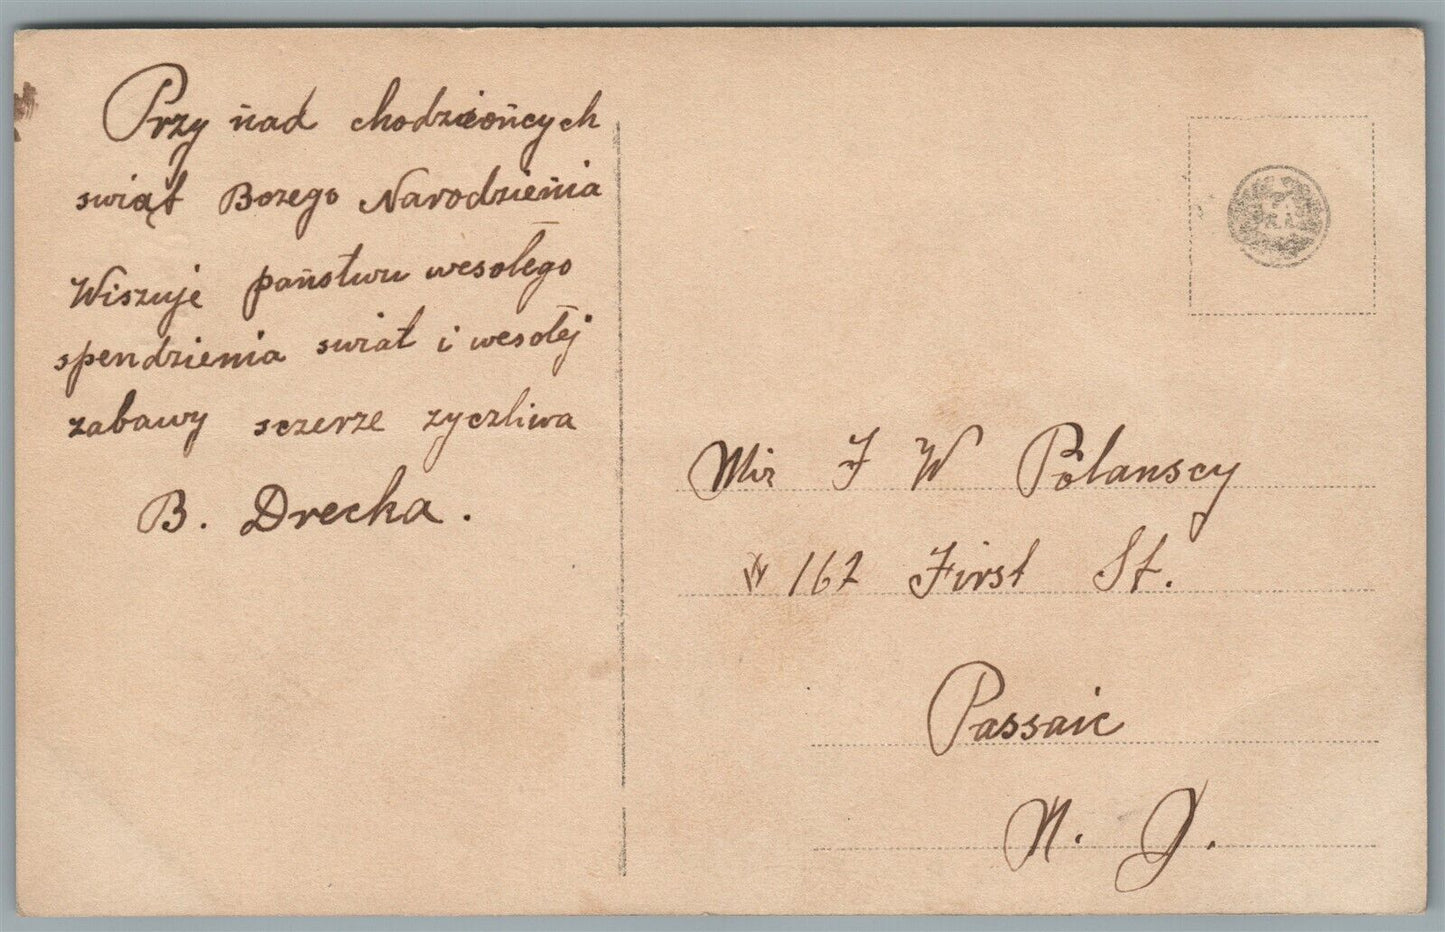 Przy ńad chodzieońcych
swiąt Bozego Narodzieńia
Wiszuje państwu wesołego
spendzienia swiat i wesołej
zabawy sczerze zyczliwa
B. Drecka.
Mir J W Polanscy
162 First St.
Passaic
N. J.